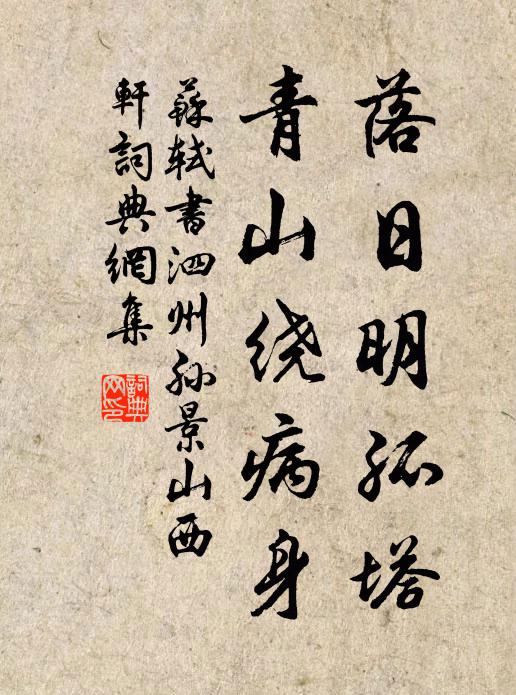 落日明孤塔
青山绕病身
蘇軾書泗州孫景山西
軒詞典網集
詞典
网印